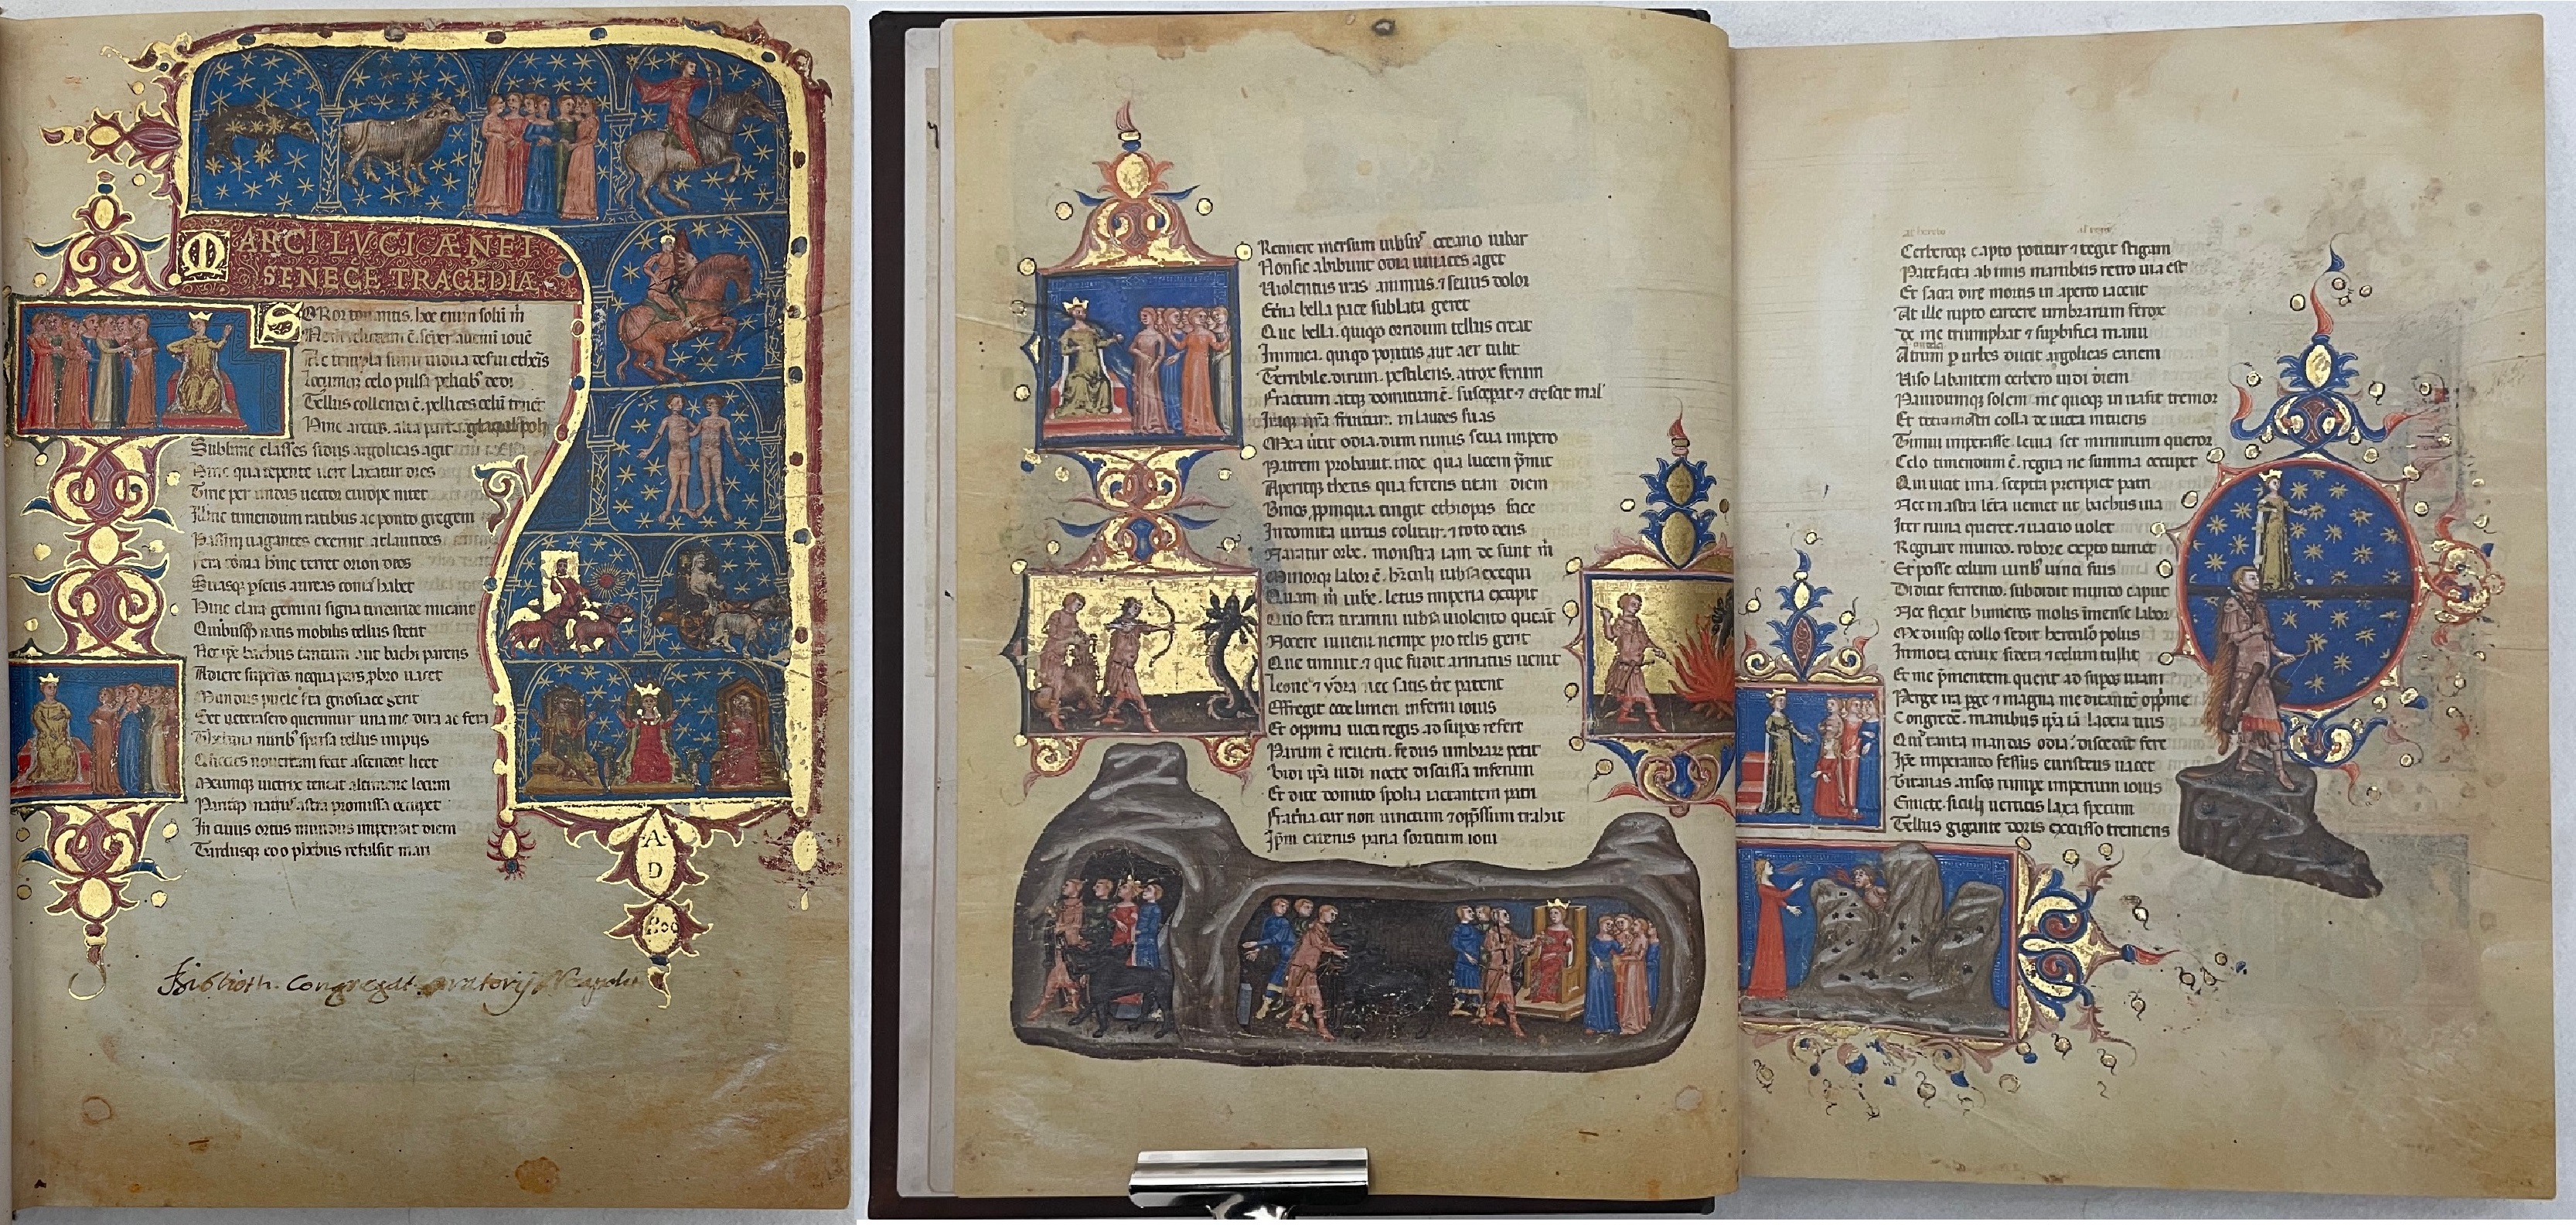 MARCI LVCI ÆNEI
SENECE TRAGEDIÆ
SOROR tonantis. hoc enim solū m̄
Nomen relictum ē. semper alienū iouē
Ac templa summi uidua deserui etheris
Locumque celo pulsa pelicib; dedi
Tellus colenda ē. pellices celū tenēt
Hinc arctus. alta parte glacialis poli
Sublime classes sidus argolicas agit
Hinc qua repente uere laxatur dies
Tirie per undas uector europe nitet
Illinc timendum ratibus ac ponto gregem
Passim uagantes exerunt atlantides
fera coma hinc terret orion deos
Suasque perseus aureas comas habet
Hinc clara gemini signa tindaride micant
Quibusque natis mobilis tellus stetit
Nec ipse bachus tantum aut bachi parens
Adiere superos. nequa pars probro uacet
Mundus puelle serta gnosiace gerit
Set uetera sero querimur una me dira ac fera
Thebana nurib; sparsa tellus impiis
Quociens nouercam fecit ascendat licet
Meumque uictrix teneat alcmene locum
Pariterque natus astra promissa occupet
In cuius ortus mundus impendit diem
Tardusque eoo phebus refulsit mari
A
D
Biblioth. Congregat. oratorij Neapolis
Retinere mersum iussus oceano iubar
Non sic abibunt odia uiuaces aget
Uiolentus iras animus. et seuus dolor
Eterna bella pace sublata geret
Que bella. quicquid orridum tellus creat
Inimica. quicquid pontus aut aer tulit
Terribile. dirum. pestilens. atrox ferum
fractum atque domitum ē. superat et crescit mal'
Iraque nostra fruitur. in laudes suas
Mea uertit odia. dum nimis seua impero
Patrem probauit. inde qua lucem premit
Aperitque thetis qua ferens titan diem
Binos propinqua tingit ethiopas face
Indomita uirtus colitur. et toto deus
Narratur orbe. monstra iam desunt m̄
Minorque labor ē. herculi iussa exequi
Quam m̄ iubere. letus imperia excipit
Que fera tiranni iussa uiolento queant
Nocere iuueni nempe pro telis gerit
Que timuit. et que fudit armatus uenit
Leone et ydra nec satis terre patent
Effregit ecce limen inferni iouis
Et oppima uicti regis ad superos refert
Parum ē reuerti. fedus umbrarum perit
Uidi ipsa uidi nocte discussa inferum
Et dite domito spolia iactantem patri
fraterna cur non uinctum et oppressum trahit
Ipsum catenis paria sortitum ioui
Cerbereoque capto potitur et tegit stigam
Patefacta ab imis manibus retro uia est
Et sacra dire mortis in aperto iacent
At ille rupto carcere umbrarum ferox
de me triumphat et superbifica manu
Atrum per urbes ducit argolicas canem
Uiso labantem cerbero uidi diem
Pauidumque solem me quoque inuasit tremor
Et terna monstri colla deuicta intuens
Timui imperasse. leuia set nimium queror
Celo timendum ē. regna ne summa occupet
Qui uicit ima. sceptra precipiet patri
Nec in astra lenta ueniet ut bachus uia
Iter ruina queret. et uacuo uolet
Regnare mundo. robore experto tumet
Et posse celum uiribus uinci suis
Didicit ferendo. subdidit mundo caput
Nec flexit humeros molis immense labor
Mediusque collo sedit herculeo polus
Inmota ceruix sidera et celum tullit
Et me prementem querit ad superos uiam
Perge ira perge et magna meditantē opprime
Congredere. manibus ipsa iam lacera tuis
Quid tanta mandas odia discedant fere
Ipse imperando fessus euristeus uacet
Titanas ausos rumpe imperium iouis
Emicte. siculi uerticis laxa specum
Tellus gigante doris excusso tremens